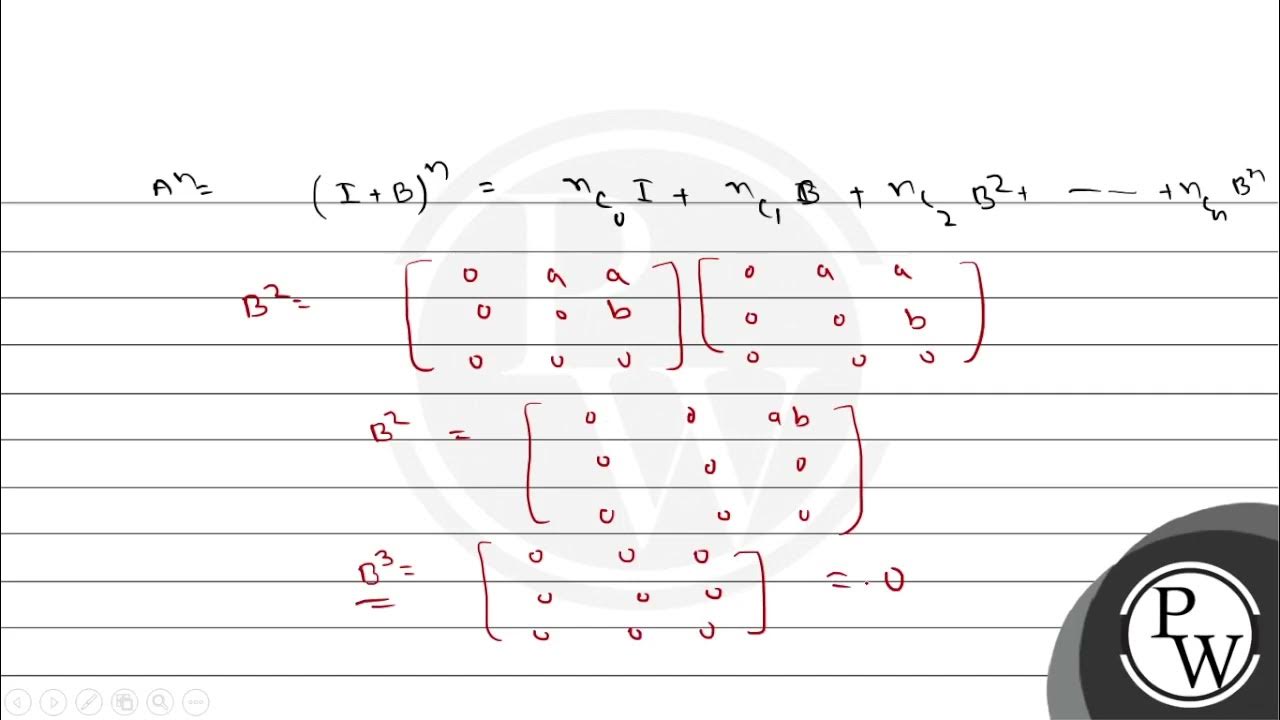 Aⁿ = (I + B)ⁿ = ⁿC₀ I + ⁿC₁ B + ⁿC₂ B² + —— + ⁿCₙ Bⁿ
B² = [ 0 a a ] [ 0 a a ]
0 0 b 0 0 b
0 0 0 0 0 0
B² = [ 0 0 ab ]
0 0 0
0 0 0
B³ = [ 0 0 0 ] = 0
0 0 0
0 0 0
P
W
P
W